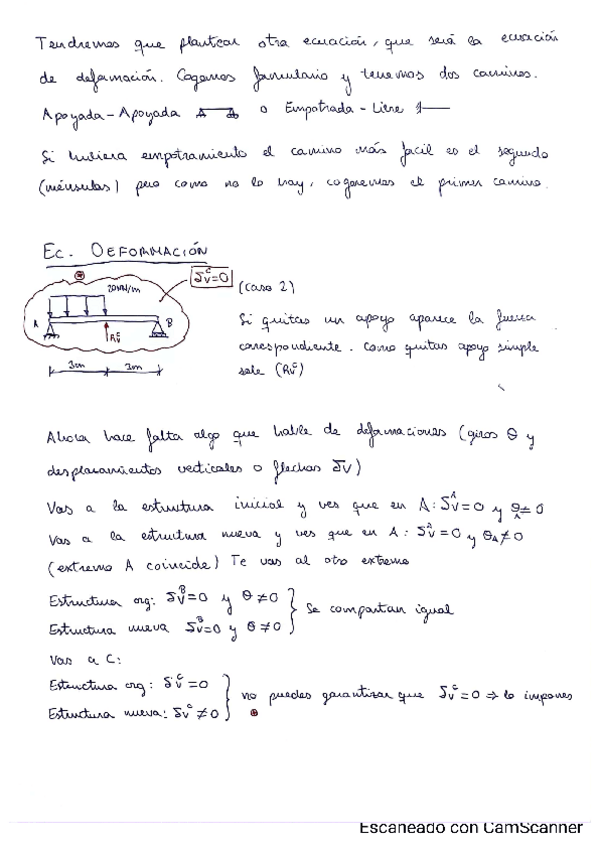 Tendremos que plantear otra ecuación, que será la ecuación
de deformación. Cogemos formulario y tenemos dos caminos.
Apoyada-Apoyada o Empotrada-Libre
Si hubiera empotramiento el camino más facil es el segundo
(ménsulas) pero como no lo hay, cogeremos el primer camino.
EC. DEFORMACIÓN
δvᶜ=0
20kN/m
(caso 2)
A B
Rvᶜ
3m 3m
Si quitas un apoyo aparece la fuerza
correspondiente. Como quitas apoyo simple
sale (Rvᶜ)
Ahora hace falta algo que hable de deformaciones (giros θ y
desplazamientos verticales o flechas δV)
Vas a la estructura inicial y ves que en A: δvᴬ=0 y θA≠0
Vas a la estructura nueva y ves que en A: δvᴬ=0 y θA≠0
(extremo A coincide) Te vas al otro extremo
Estructura org: δvᴮ=0 y θ≠0
Estructura nueva δvᴮ=0 y θ≠0
Se comportan igual
Vas a C:
Estructura org: δvᶜ=0
Estructura nueva: δvᶜ≠0
no puedes garantizar que δvᶜ=0 ⇒ lo impones
Escaneado con CamScanner